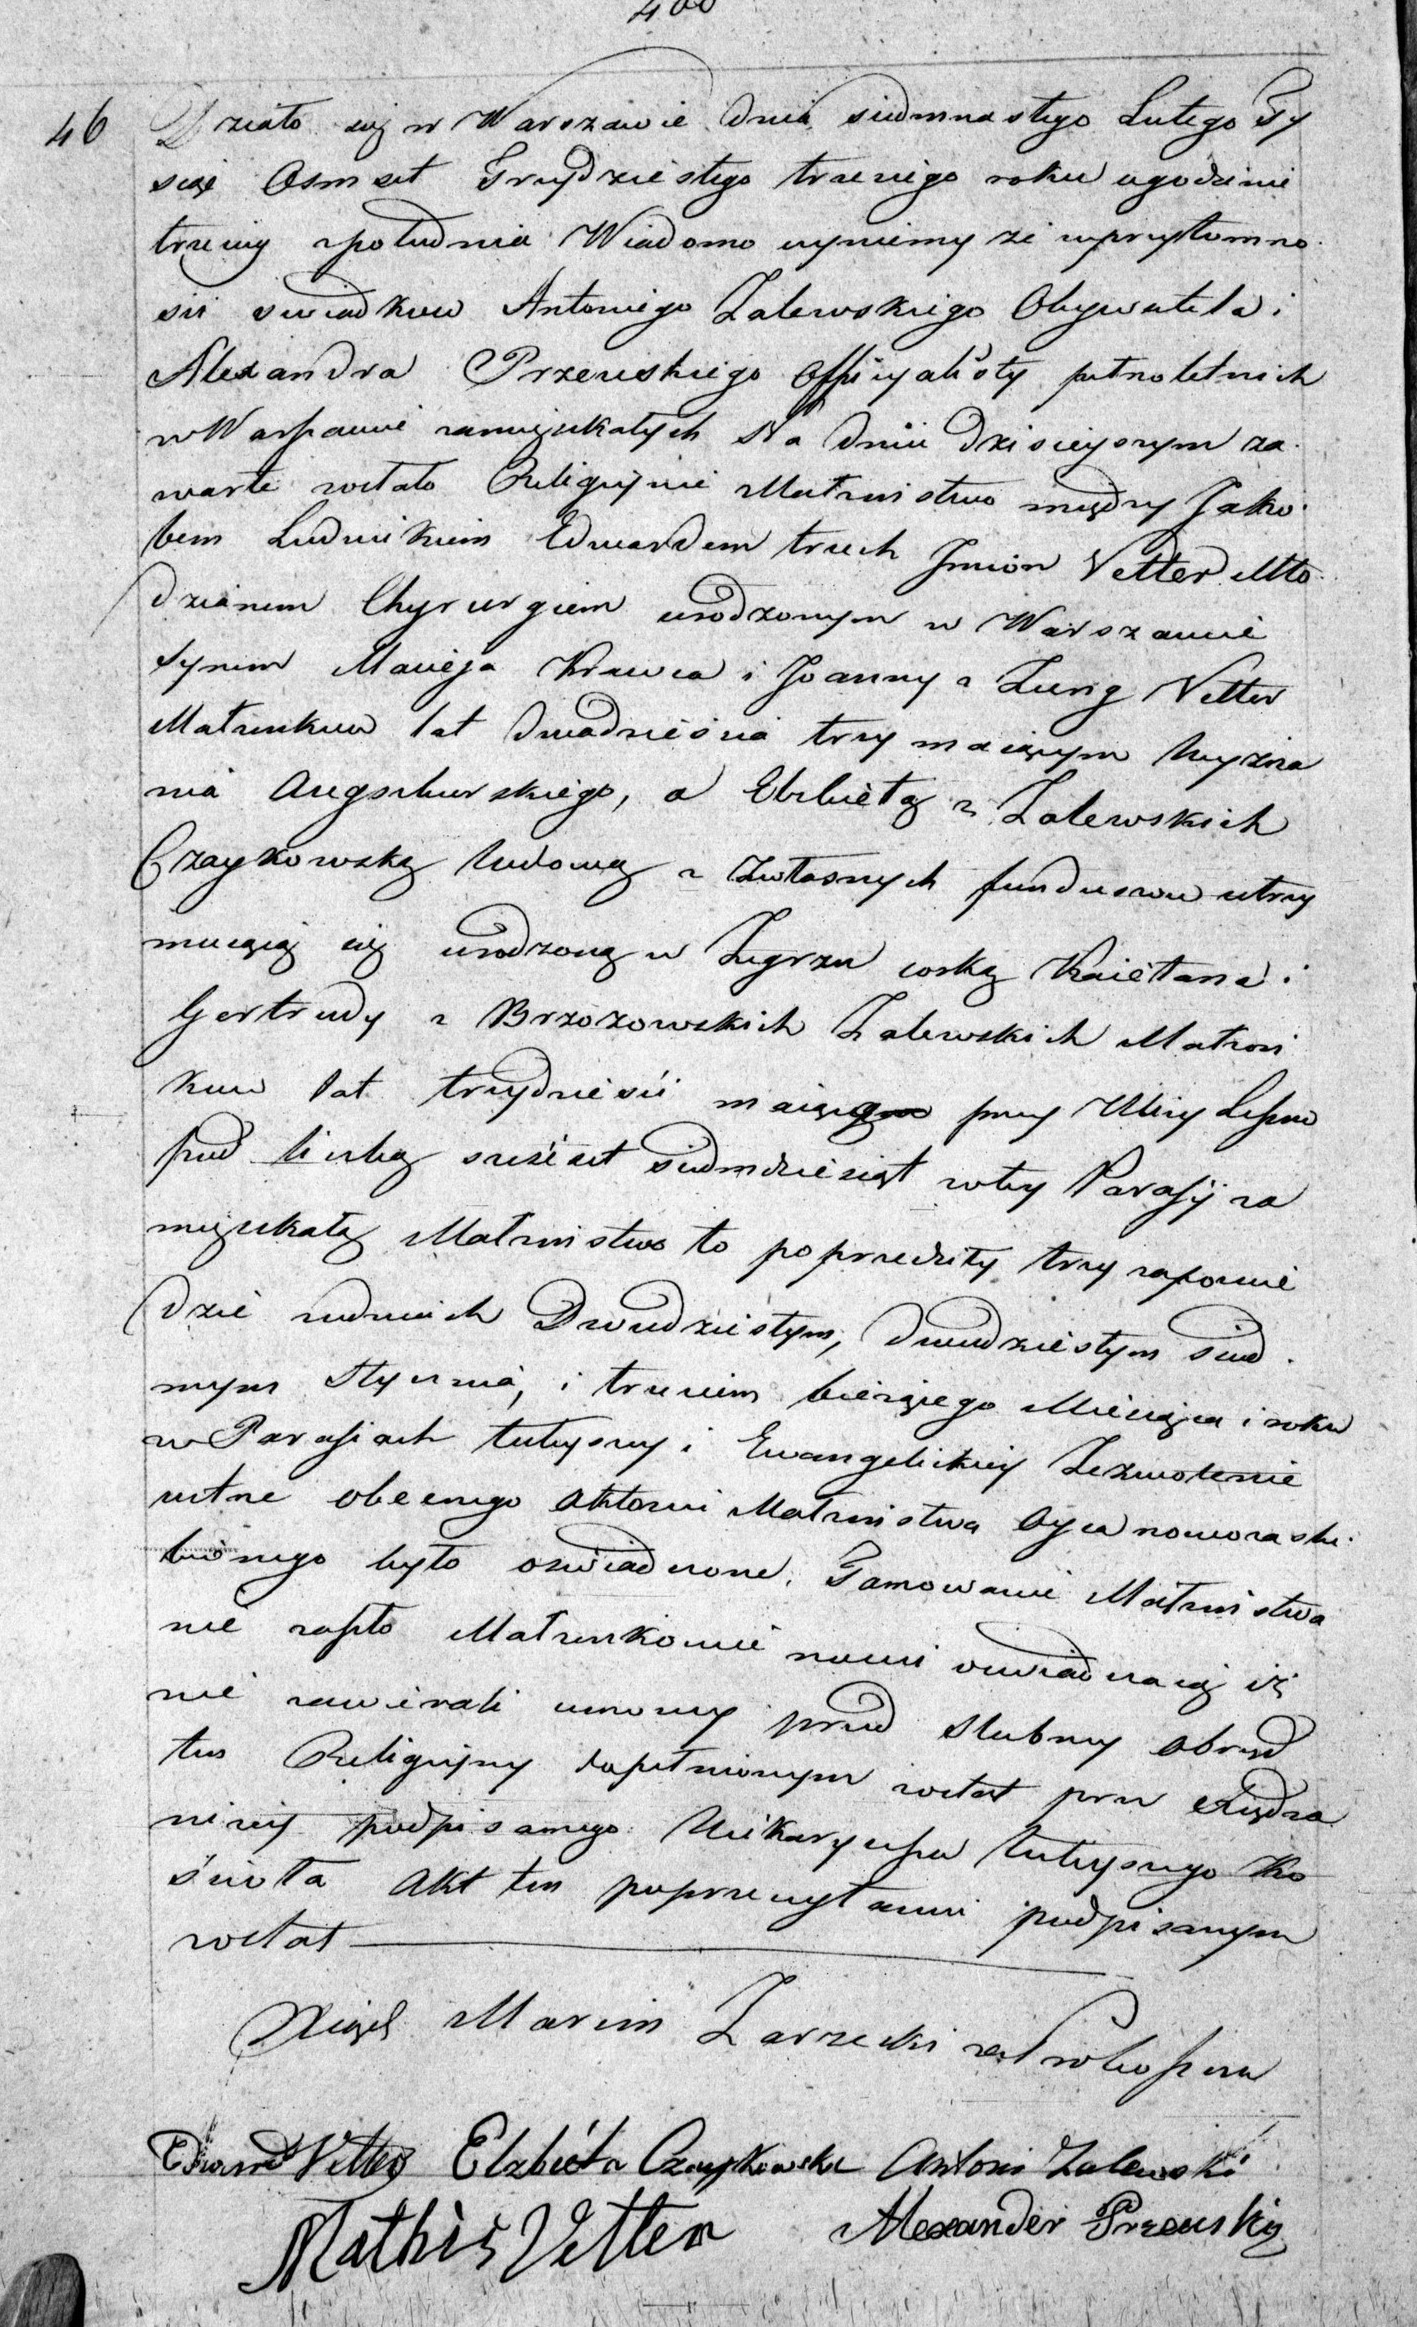 400
46 Działo się w Warszawie dnia siedmnastego Lutego Ty
siąc Osmset Trzydziestego trzeciego roku ugodzinie
trzeciey zpołudnia Wiadomo czyniemy że wprzytomno
sci swiadkow Antoniego Zalewskiego Obywatela i
Alexandra Przeuskiego Officyalisty pełnoletnich
w Warszawie zamięszkałych Na dniu dzisieyszym za
warte zostało Religijnie Małżenstwo między Jako
bem Ludwikiem Edwardem trzech Jmion Vetter Mło
dzianem Chyrurgiem urodzonym w Warszawie
synem Macieja Krawca i Joanny z Zung Vetter
Małżonkow lat dwadzieścia trzy maiącym Wyzna
nia Augsburskiego, a Elżbietą z Zalewskich
Czaykowską Wdową z Własnych funduszow utrzy
muiącą się urodzoną w Zegrzu corką Kaietana i
Gertrudy z Brzozowskich Zalewskich Małżon
kow lat trzydzieści maiącą przy Ulicy Leszno
pod liczbą sześćset siedmdziesiąt wtey Parafij za
mięszkałą Małżenstwo to poprzedziły trzy zapowie
dzie wdniach Dwudziestym, dwudziestym siod
mym Stycznia, i trzecim bieżącego Miesiąca i roku
w Parafiach tuteyszey i Ewangelickiey Zezwolenie
ustne obecnego Aktowi Małżenstwa Oyca nowozaslu
bionego było oswiadczone. Tamowanie Małżenstwa
nie zaszło Małżonkowie nowi oswiadczaią iż
nie zawierali umowy przed slubney Obrzęd
ten Religijny dopełnionym został przez Xiędza
niżey podpisanego Wikaryusza tuteyszego Ko
ścioła Akt ten poprzeczytaniu podpisanym
został
Xiądz Marcin Zarzecki
Edward Vetter Elzbieta Czaykowska Antoni Zalewski
Mathis Vetter Alexander Przeuski